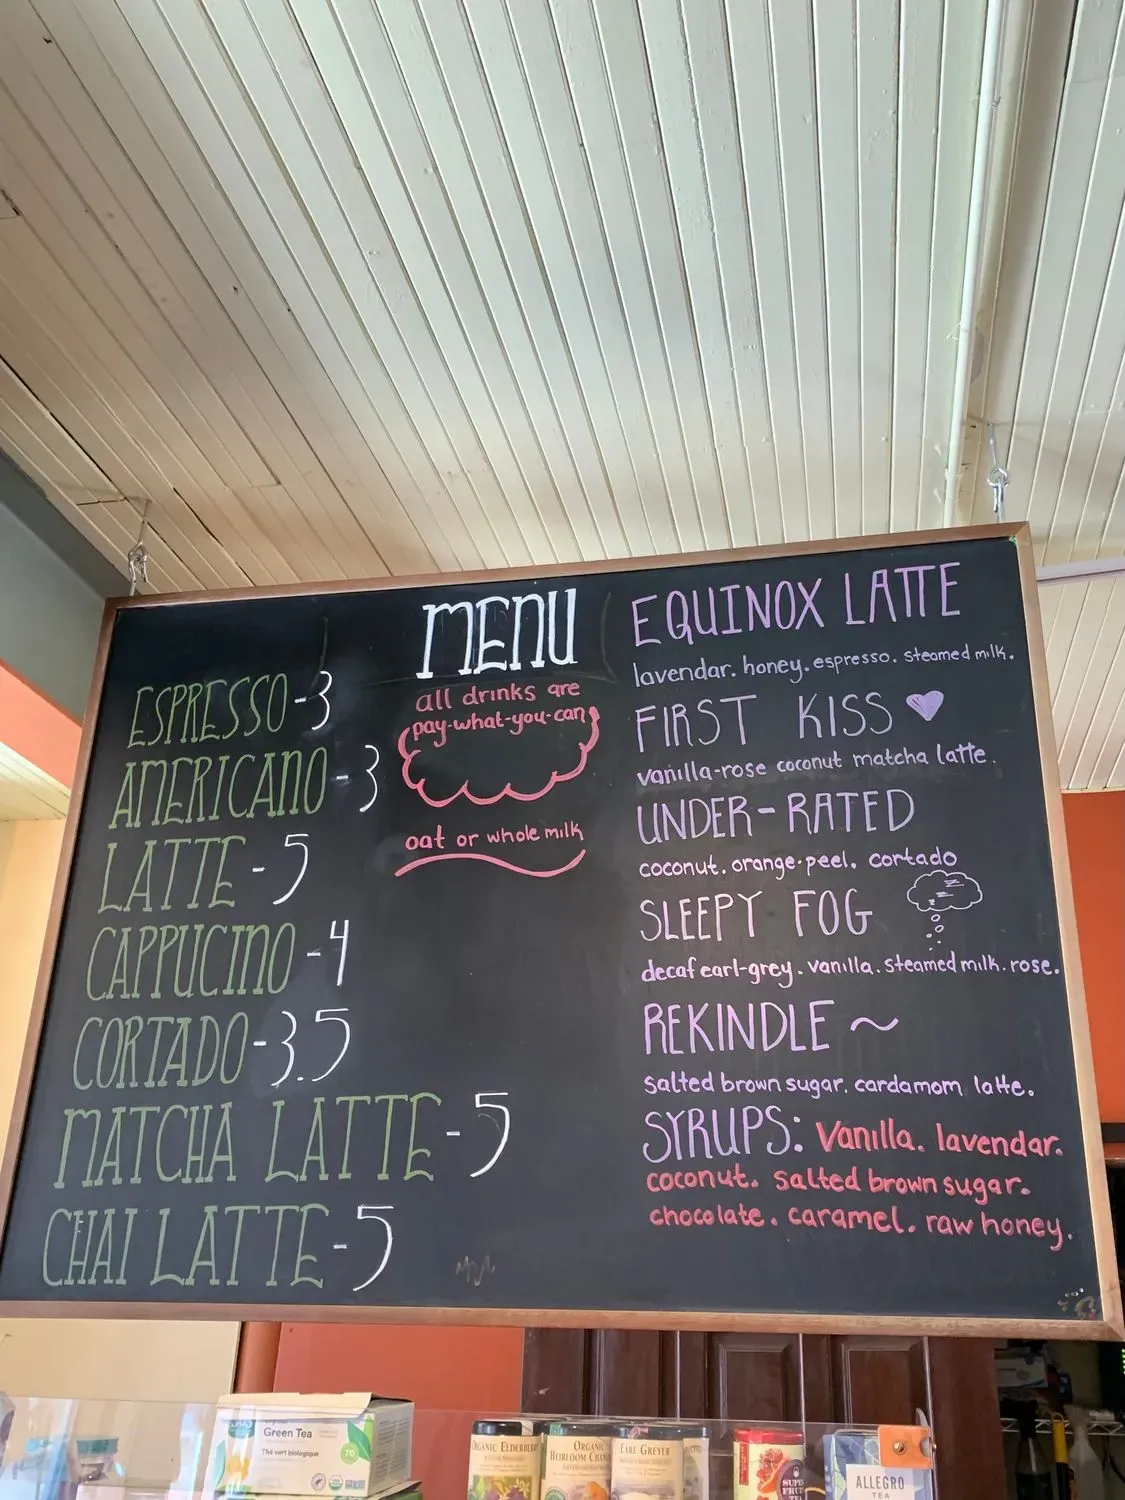 MENU
all drinks are
pay-what-you-can
oat or whole milk
ESPRESSO-3
AMERICANO-3
LATTE-5
CAPPUCINO-4
CORTADO-3.5
MATCHA LATTE-5
CHAI LATTE-5
EQUINOX LATTE
lavendar. honey. espresso. steamed milk.
FIRST KISS
vanilla-rose coconut matcha latte.
UNDER-RATED
coconut. orange-peel. cortado
SLEEPY FOG
decaf earl-grey. vanilla. steamed milk. rose.
REKINDLE ~
salted brown sugar. cardamom latte.
SYRUPS: Vanilla. lavendar.
coconut. salted brown sugar.
chocolate. caramel. raw honey.
Green Tea
Thé vert biologique
70
ORGANIC
ORGANIC
HEIRLOOM
EARL GREYER
ALLEGRO
TEA